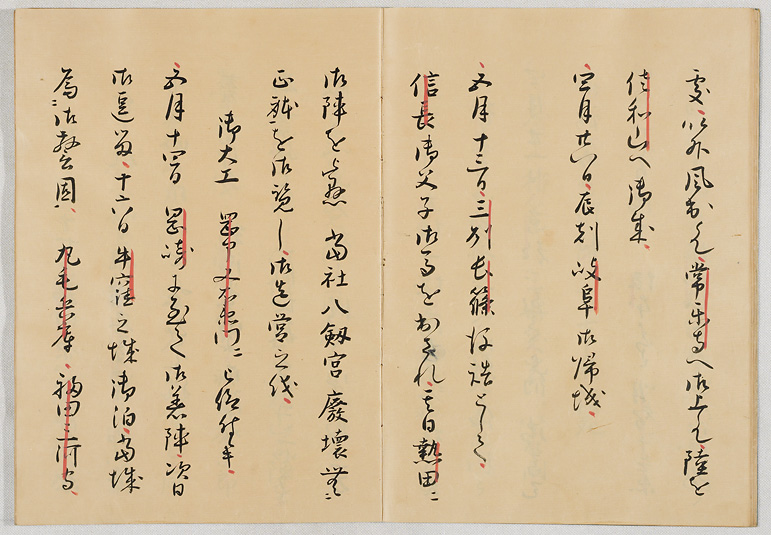 处以外風出候常楽寺へ御上り候陸を
佐和山へ御成
四月廿八日辰刻岐阜御帰城
五月十三日三州長篠後詰として
信長御父子御馬を出され其日熱田ニ
御陣を懸当社八剱宮廃壊無ニ
正躰を御覧し御造営之儀
御大工岡部又右衛門ニ被仰付早
五月十四日岡崎ニ至て御着陣次日
御逗留十六日牛窪之城御泊当城
為御警固丸毛兵庫福田三河守